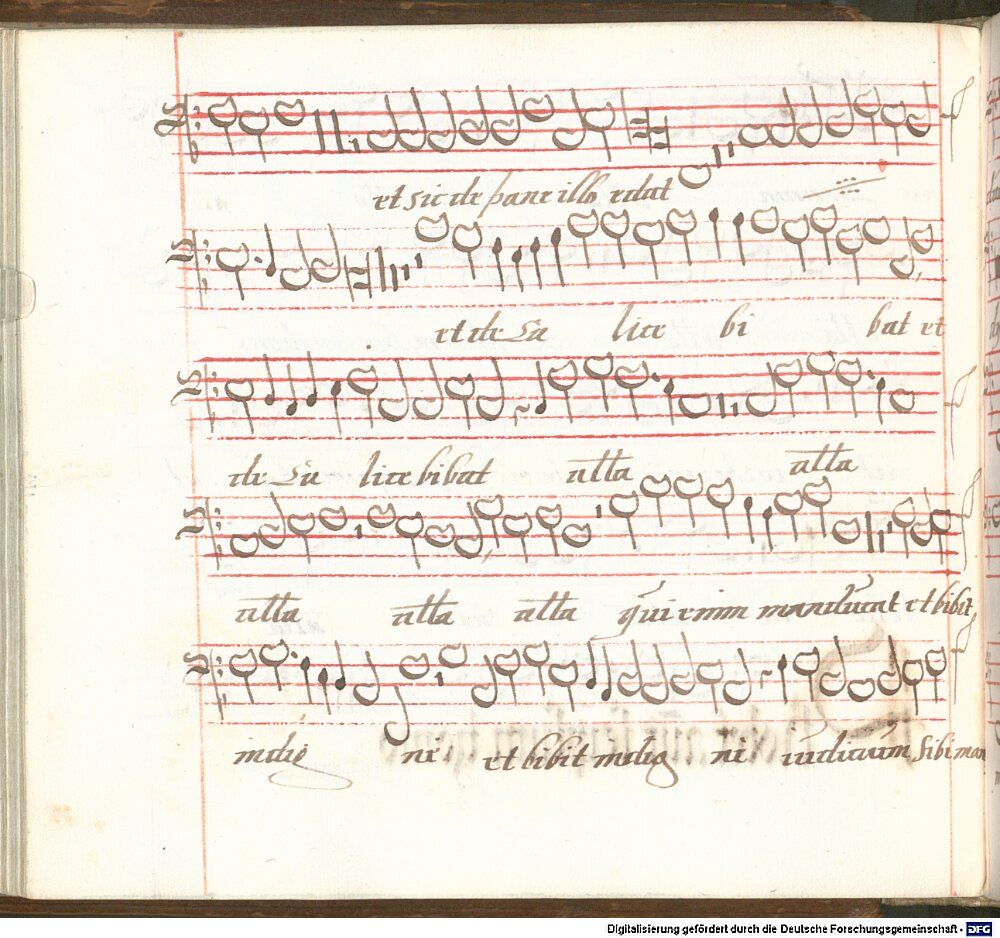 et sic de pane illo edat
et de Ca lice bi bat et
de Ca lice bibat alla alla
alla alla alla qui enim manducat et bibit
indig ne et bibit indig ne iudicium sibi man
Digitalisierung gefördert durch die Deutsche Forschungsgemeinschaft - DFG